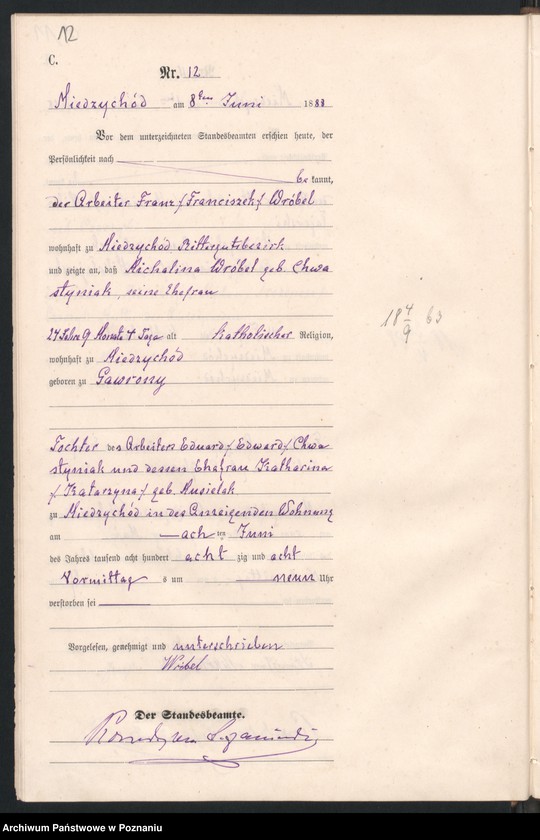 12
C.
Nr. 12
Miedzychód am 8ten Juni 1888
Vor dem unterzeichneten Standesbeamten erschien heute, der
Persönlichkeit nach
be kannt,
der Arbeiter Franz /Franciszek/ Wróbel
wohnhaft zu Miedzychód Rittergutsbezirk
und zeigte an, daß Michalina Wróbel geb. Chwa
styniak, seine Ehefrau
24 Jahre 9 Monate 4 Tage alt katholischer Religion,
wohnhaft zu Miedzychód
geboren zu Gawrony
Tochter des Arbeiters Eduard /Edward/ Chwa
styniak und dessen Ehefrau Katharina
/Katarzyna/ geb. Musielak
zu Miedzychód in des Anzeigenden Wohnung
am ach ten Juni
des Jahres tausend acht hundert acht zig und acht
Vormittag s um neun Uhr
verstorben sei
Vorgelesen, genehmigt und unterschrieben
Wróbel
Der Standesbeamte.
18 4/9 63
Archiwum Państwowe w Poznaniu